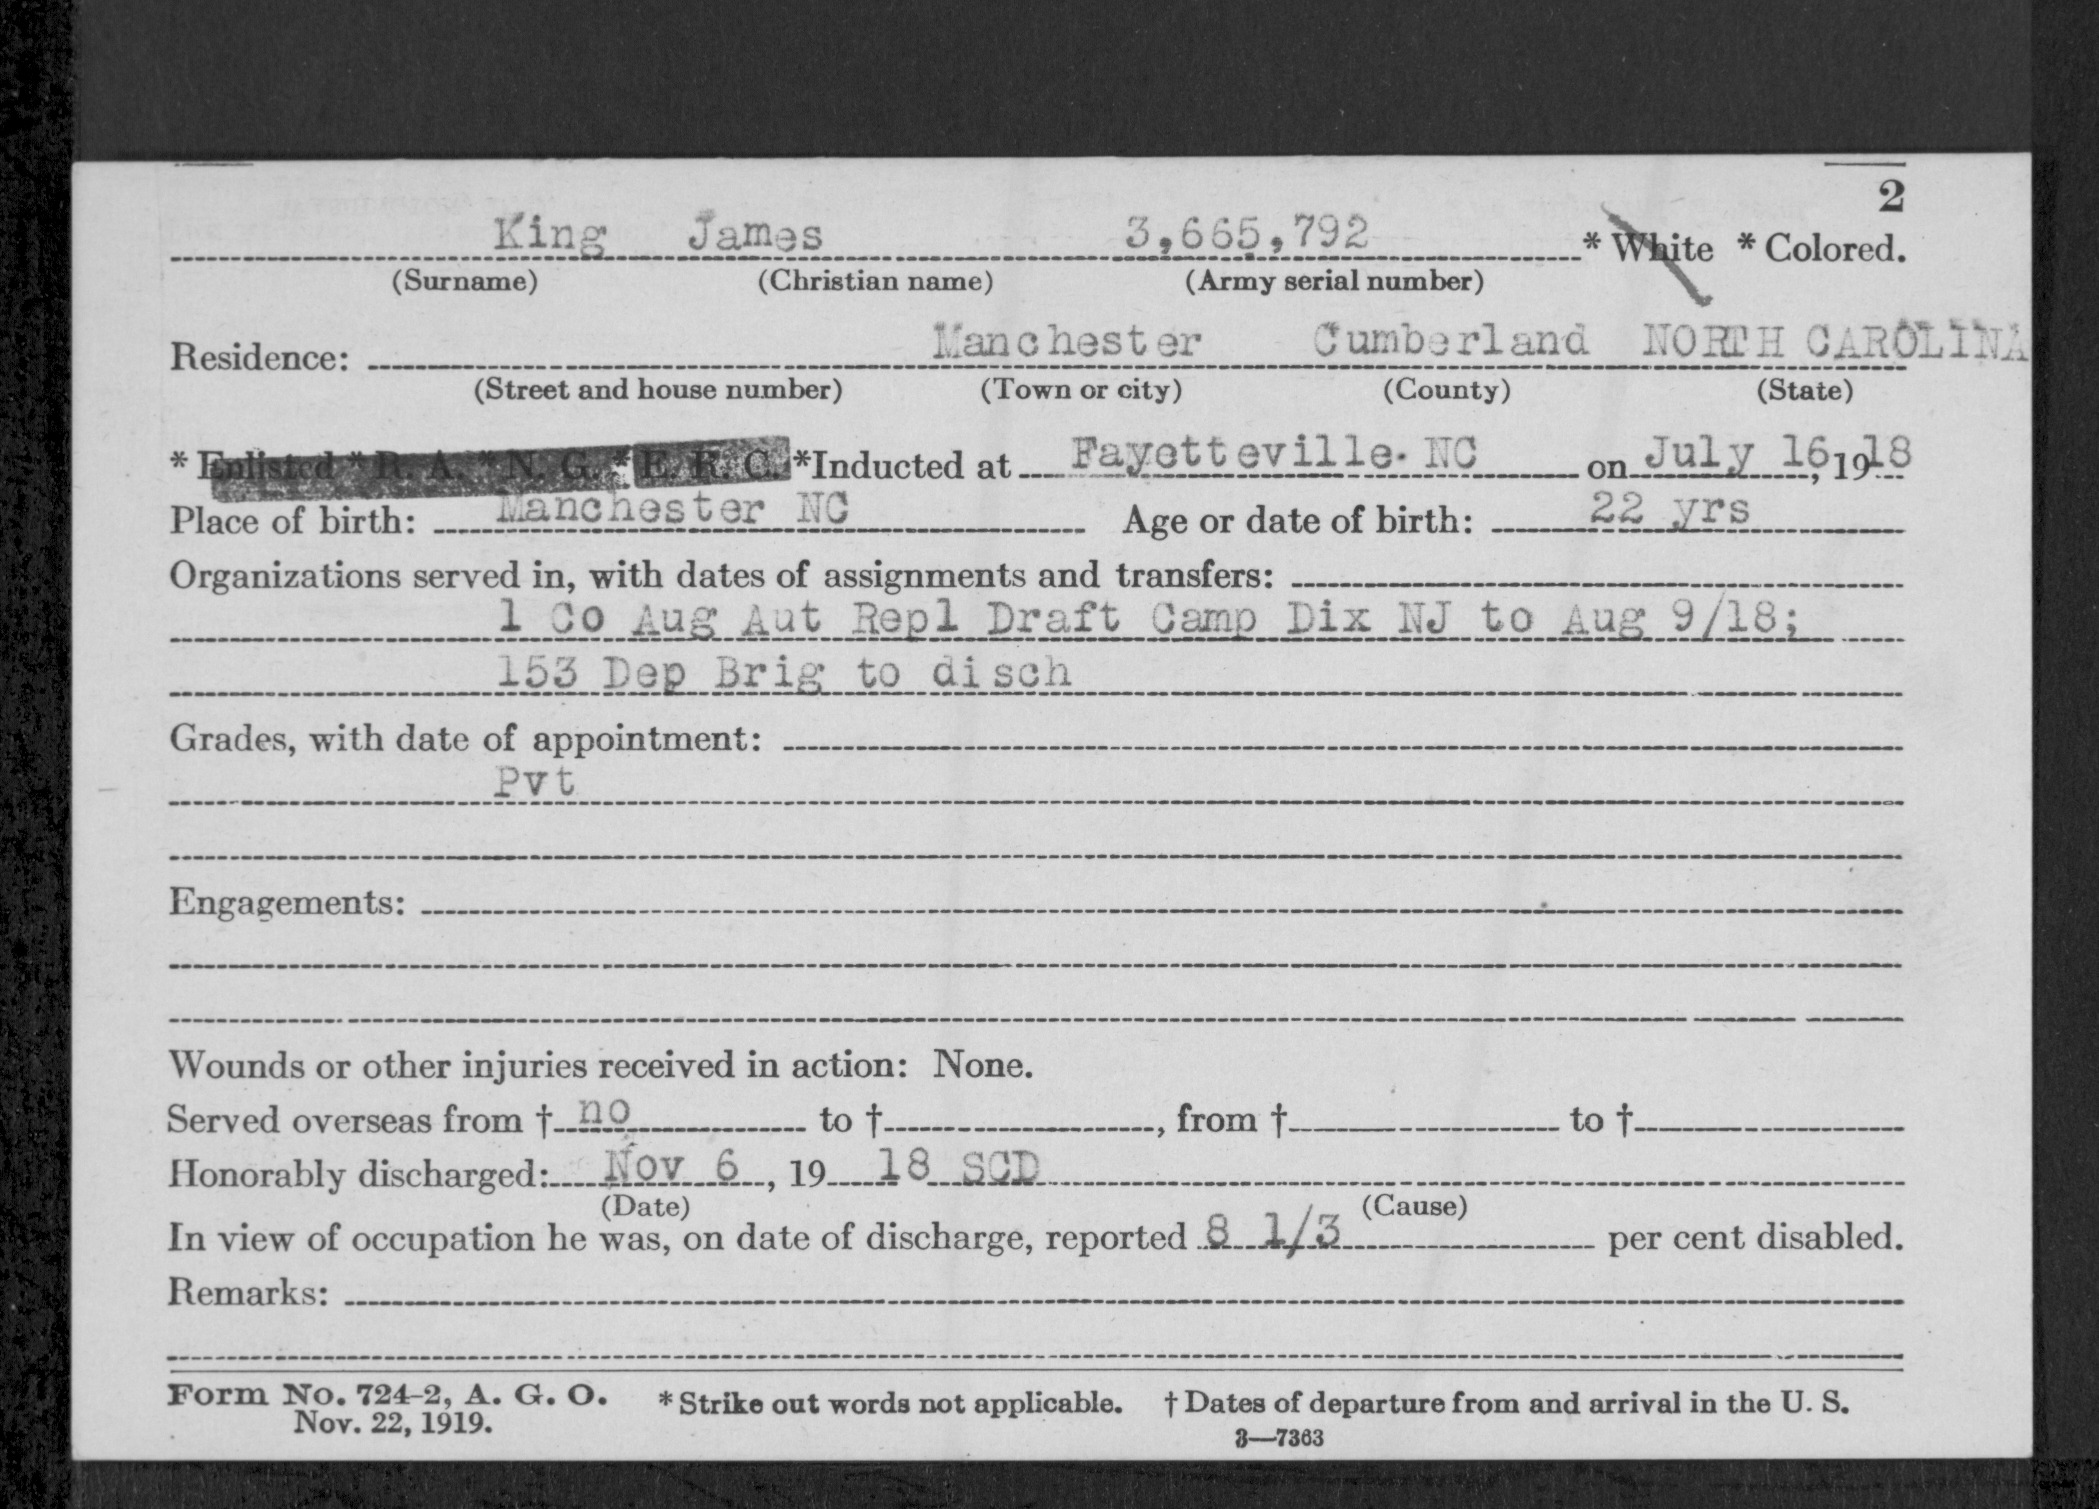 2
King James 3,665,792 * White * Colored.
(Surname) (Christian name) (Army serial number)
Residence: Manchester Cumberland NORTH CAROLINA
(Street and house number) (Town or city) (County) (State)
* Enlisted * R. A. * N. G. * E. R. C. *Inducted at Fayetteville. NC on July 16, 1918
Place of birth: Manchester NC Age or date of birth: 22 yrs
Organizations served in, with dates of assignments and transfers:
1 Co Aug Aut Repl Draft Camp Dix NJ to Aug 9/18;
153 Dep Brig to disch
Grades, with date of appointment:
Pvt
Engagements:
Wounds or other injuries received in action: None.
Served overseas from † no to †, from † to †
Honorably discharged: Nov 6, 19 18 SCD
(Date) (Cause)
In view of occupation he was, on date of discharge, reported 8 1/3 per cent disabled.
Remarks:
Form No. 724-2, A. G. O. * Strike out words not applicable. † Dates of departure from and arrival in the U. S.
Nov. 22, 1919.
3—7363